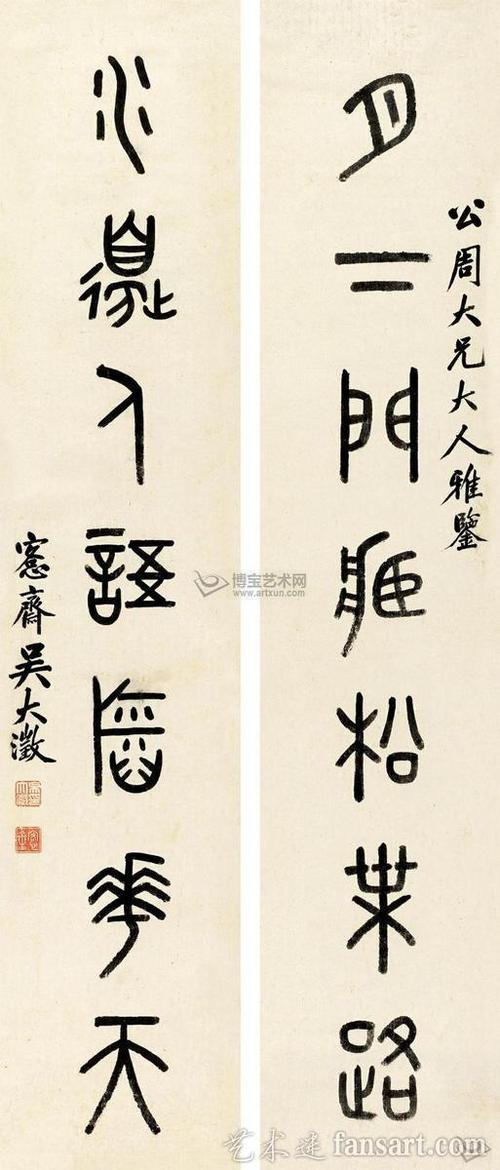 公周大兄大人雅鑒
月下門松葉路
水邊人語隱華天
愙齋吳大澂
博宝艺术网
www.artxun.com
艺术迷 fansart.com